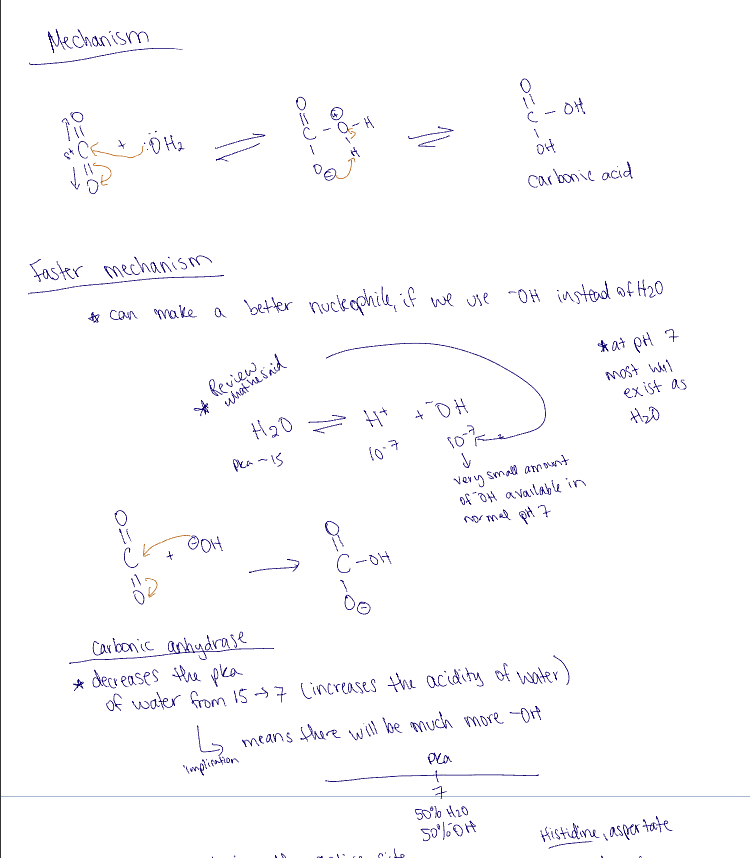 Mechanism
O
C + :ÖH2
δ+
O
O
C - O - H
H
O⊖
⊕
O
C - OH
OH
carbonic acid
Faster mechanism
* can make a better nucleophile, if we use ⁻OH instead of H2O
* at pH 7
most will
exist as
H2O
* Review
what he said
H2O ⇌ H+ + ⁻OH
pka ~ 15
10-7
10-7
↓
very small amount
of ⁻OH available in
normal pH 7
O
C + ⊖OH
O
→
O
C - OH
O⊖
Carbonic anhydrase
* decreases the pka
of water from 15 → 7 (increases the acidity of water)
means there will be much more ⁻OH
implication
pka
7
50% H2O
50% ⁻OH
Histidine, aspertate